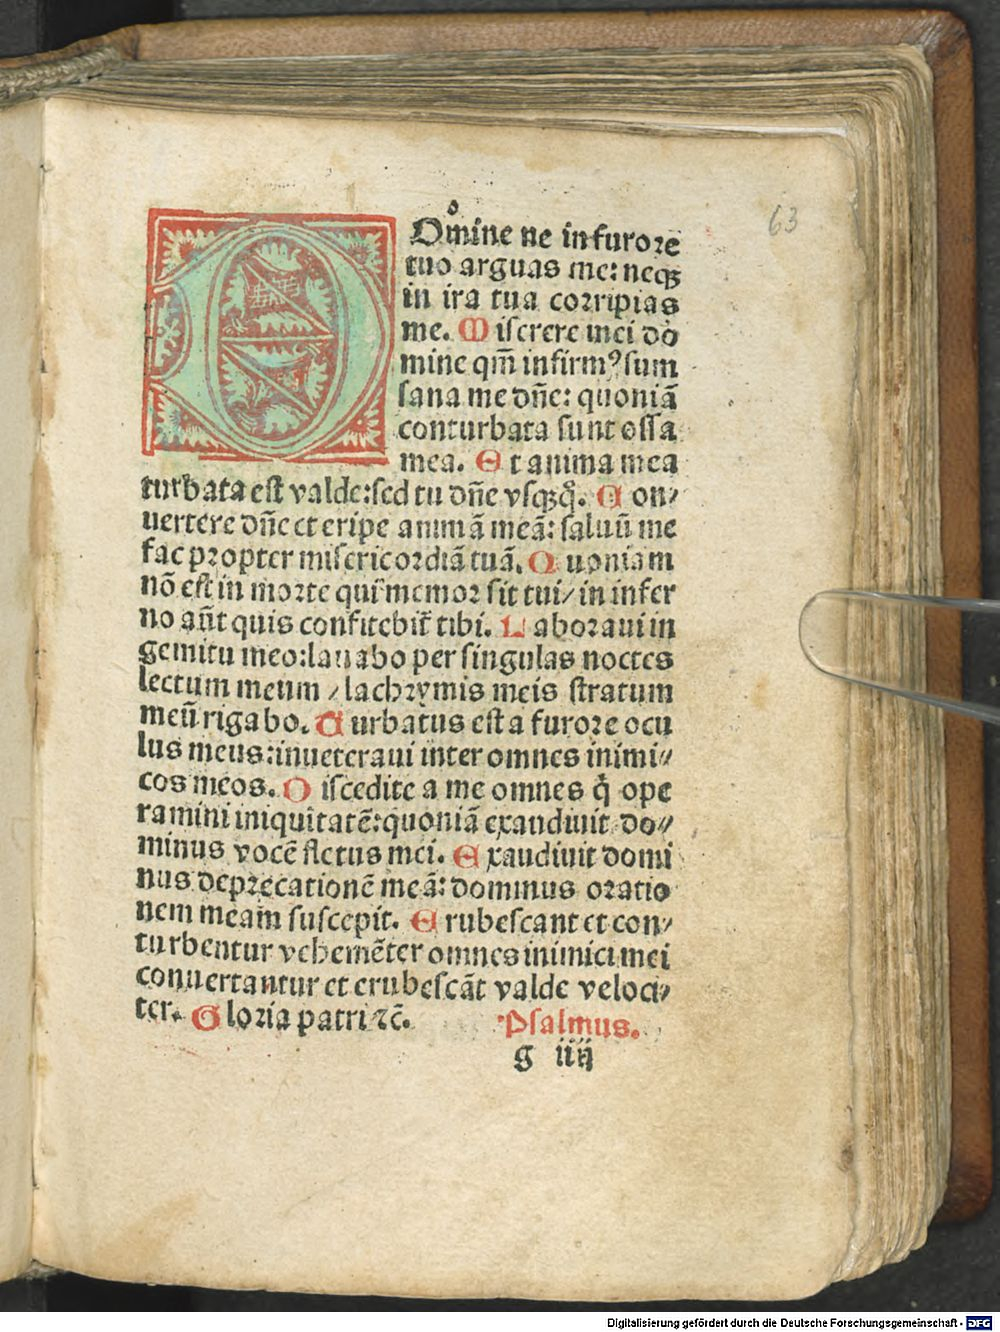 63
Domine ne in furore
tuo arguas me: neqꝫ
in ira tua corripias
me. Miserere mei do
mine qm̄ infirmꝰ sum
sana me dn̄e: quoniā
conturbata sunt ossa
mea. Et anima mea
turbata est valde: sed tu dn̄e vsqꝫq̄. Con⸗
uertere dn̄e et eripe animā meā: saluū me
fac propter misericordiā tuā. Quoniam
nō est in morte qui memor sit tui/ in infer
no aūt quis confitebit̄ tibi. Laboraui in
gemitu meo: lauabo per singulas noctes
lectum meum / lachrymis meis stratum
meū rigabo. Turbatus est a furore ocu
lus meus: inueteraui inter omnes inimi⸗
cos meos. Discedite a me omnes q̇ ope
ramini iniquitatē: quoniā exaudiuit do⸗
minus vocē fletus mei. Exaudiuit domi
nus deprecationē meā: dominus oratio
nem meam suscepit. Erubescant et con⸗
turbentur vehemēter omnes inimici mei
conuertantur et erubescāt valde veloci⸗
ter. Gloria patri ⁊c̄. Psalmus.
g iiij
Digitalisierung gefördert durch die Deutsche Forschungsgemeinschaft - DFG